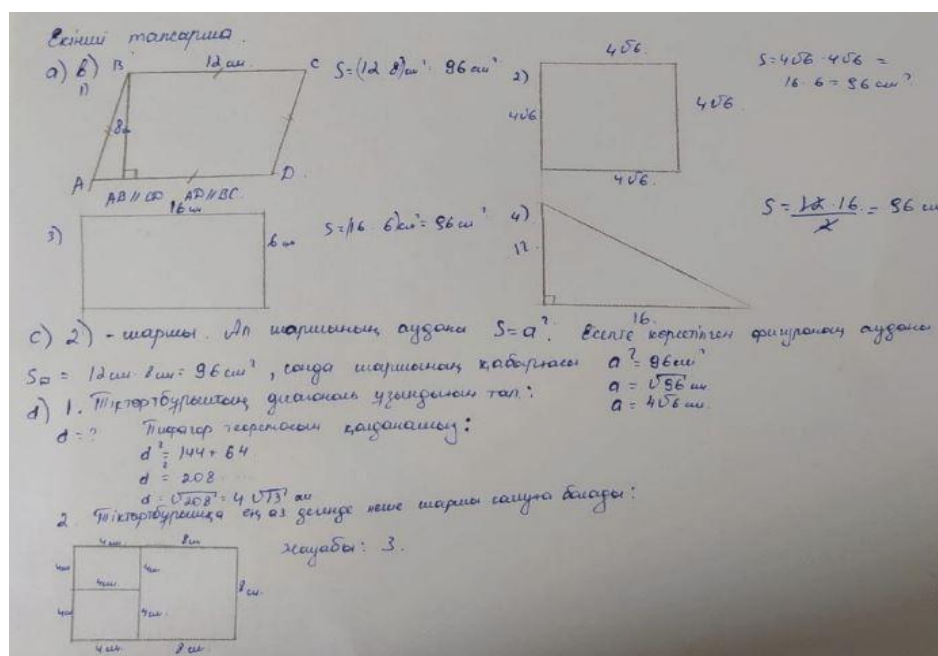 Екінші тапсырма.
a) b)
1) B 12 см C S=(12 8)см² · 96 см²
8см
A D
AB//CD AD//BC.
2) 4√6. S=4√6 · 4√6 =
16 · 6 = 96 см²
4√6 4√6.
4√6.
3) 16 см S=(16 · 6)см² = 96 см²
6 см
4) 12. S = 12 · 16 / 2 = 96 см
16.
c) 2) - шаршы. Ал шаршының ауданы S=a². Есепте көрсетілген фигураның ауданы
S▭ = 12см · 8см = 96 см², сонда шаршының қабырғасы a² = 96 см²
a = √96 см
a = 4√6 см.
d) 1. Тіктөртбұрыштың диагональ ұзындығын тап:
d = ? Пифагор теоремасын қолданамыз:
d² = 144 + 64
d² = 208
d = √208 = 4√13 см
2. Тіктөртбұрышқа ең аз дегенде неше шаршы салуға болады:
4 см 8 см жауабы: 3.
4см 4см
4см 8 см.
4см 4см.
4 см 8 см